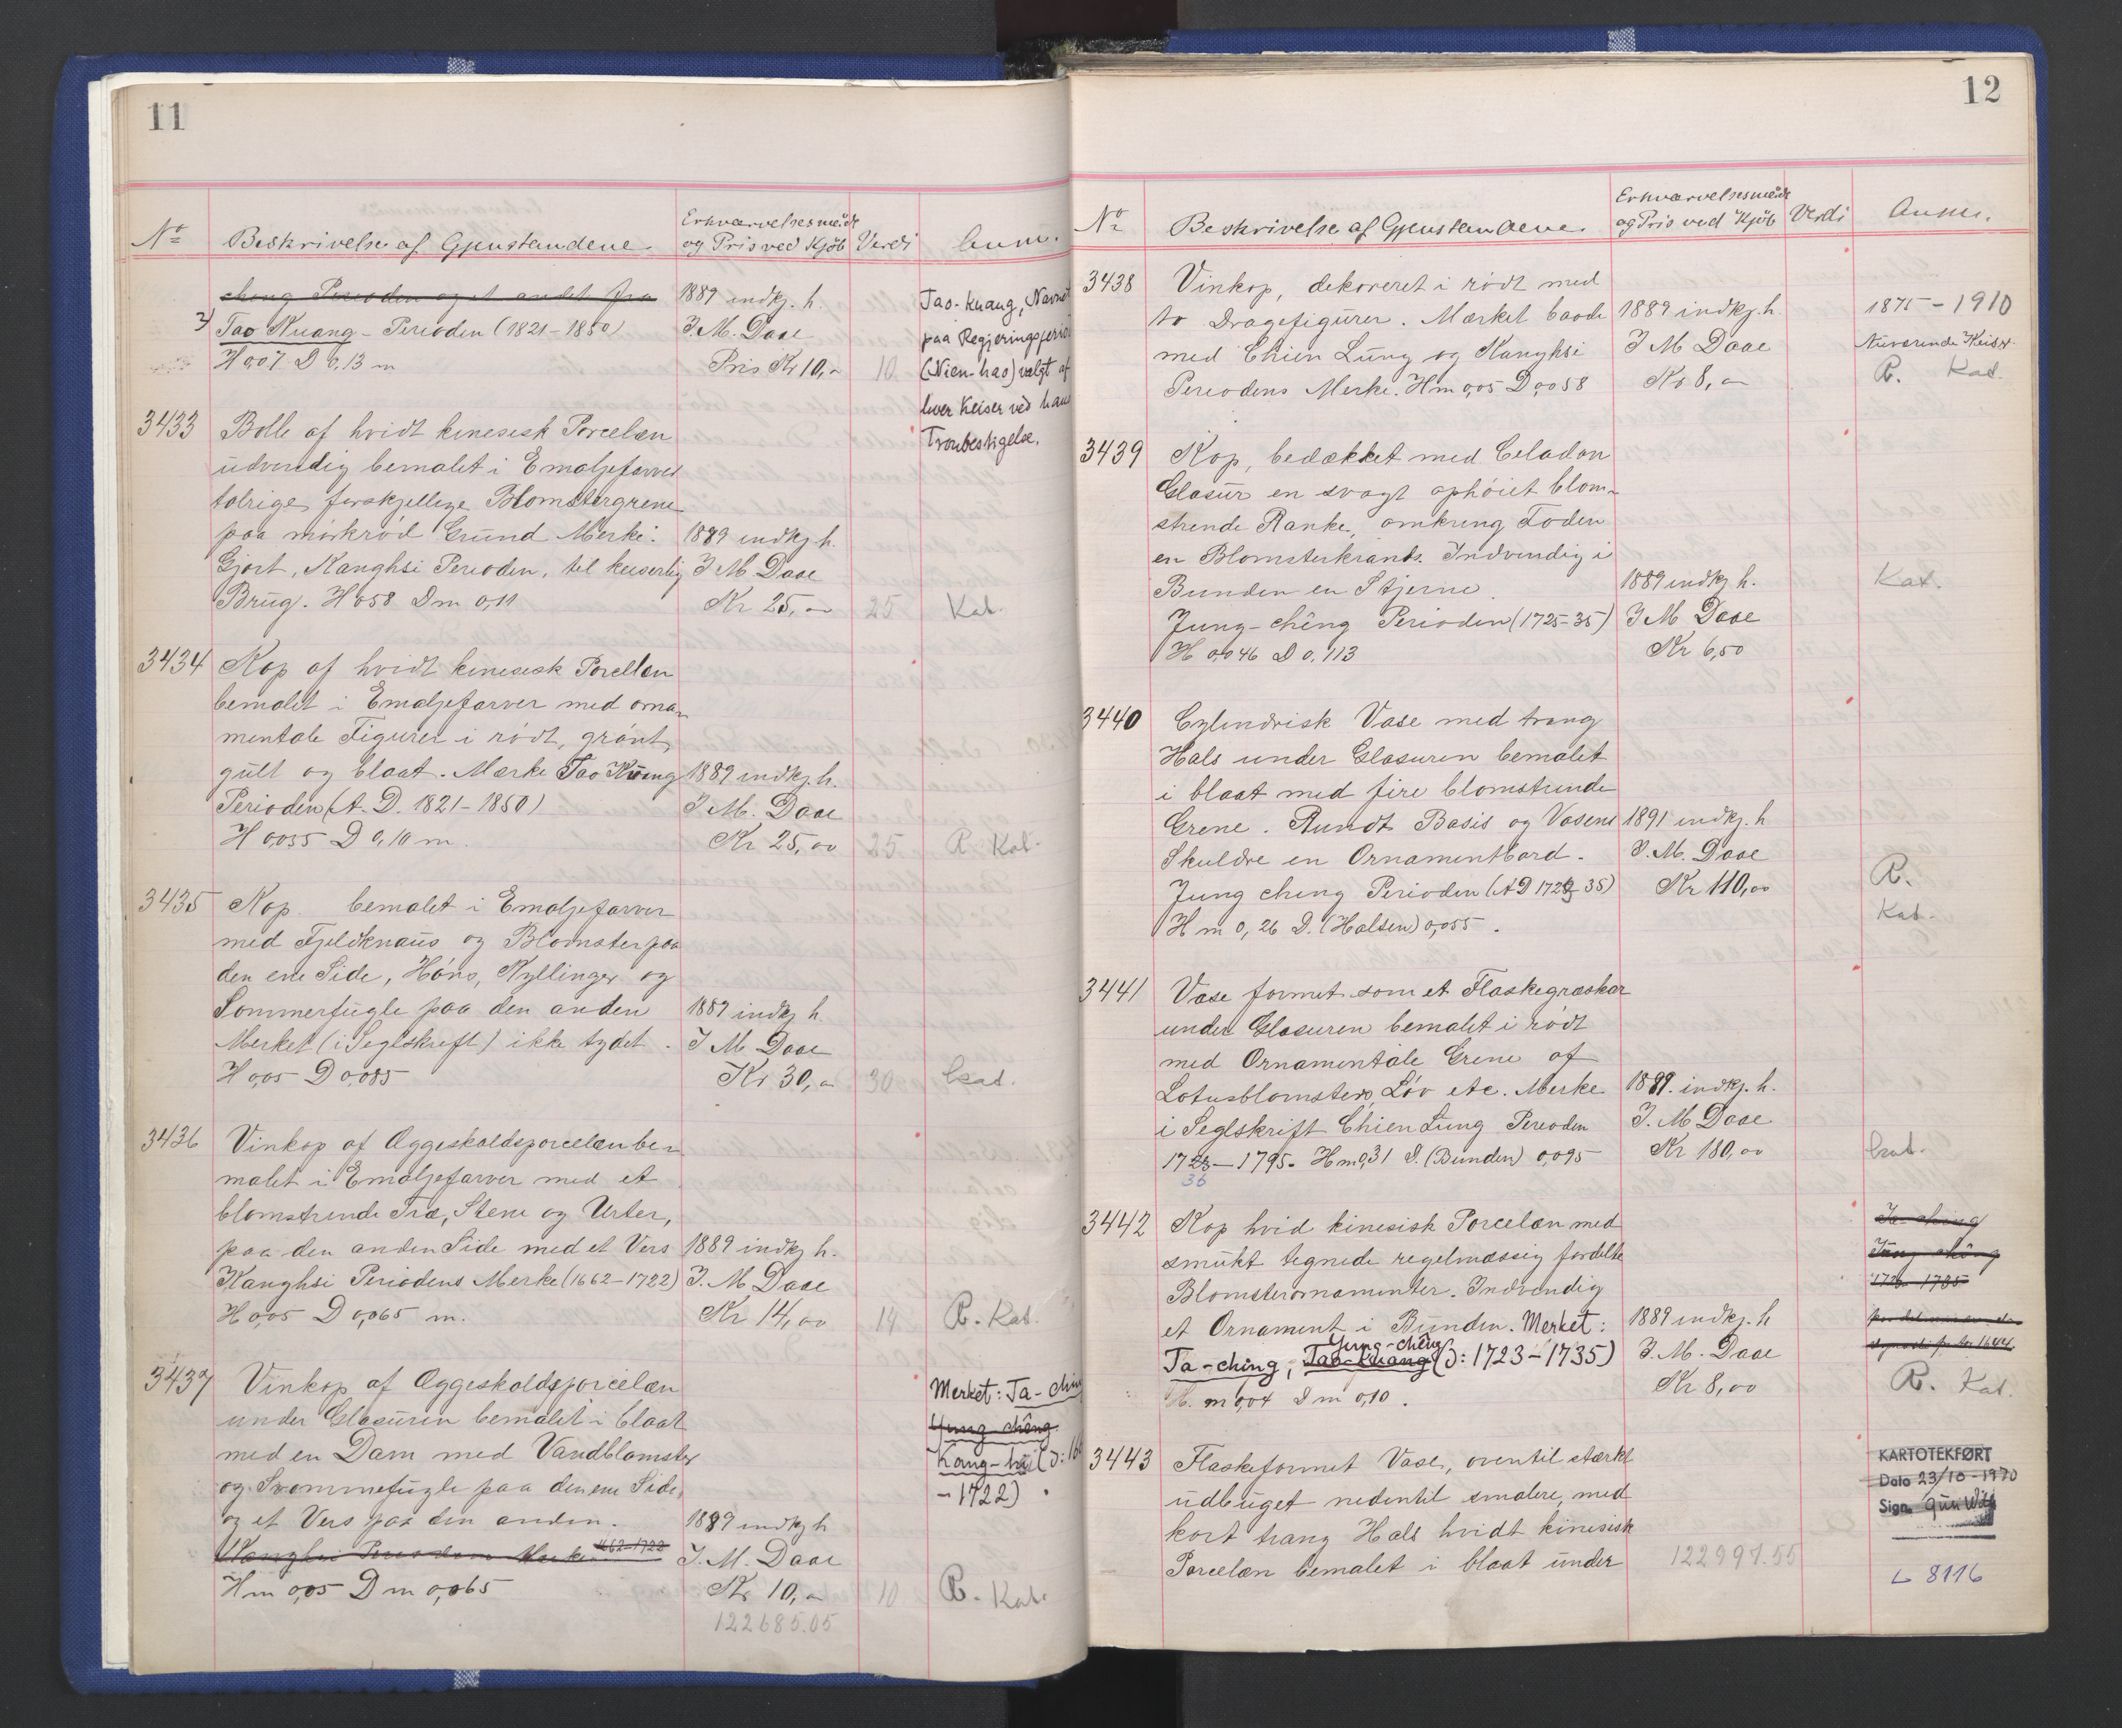 11
No
Beskrivelse af Gjenstandene.
Erhvervelsesmåde
og Pris ved Kjöb
Verdi
Anm.
cheng Perioden og et andet fra
2) Tao Kuang - Perioden (1821-1850)
H 0,07 D 0,13 m
1889 indkj. h.
I. M. Daae
Pris Kr 10,00
10
Tao-Kuang, Navnet
paa Regjeringsperiod
(Nien-hao) valgt af
hver Keiser ved hans
Tronbestigelse.
3433
Bolle af hvidt kinesisk Porcelæn
udvendig bemalet i Emaljefarver
talrige forskjellige Blomstergrene
paa mörkröd Grund Merke:
Gjort, Kanghsi Perioden, til keiserlig
Brug. H 058 Dm 0,11
1889 indkj h.
I M Daae
Kr 25,00
25
Kat.
3434
Kop af hvidt kinesisk Porcellæn
bemalet i Emaljefarver med orna-
mentale Figurer i rödt, grönt,
gult og blaat. Mærke Tao Kuang
Perioden (A. D. 1821-1850)
H 0,055 D 0,10 m.
1889 indkj. h.
I. M. Daae
Kr 25,00
25
R. Kat.
3435
Kop bemalet i Emaljefarver
med Fjeldknaus og Blomster paa
den ene Side, Höns, Kyllinger og
Sommerfugle paa den anden
Merket (i Seglskrift) ikke tydet.
H 0,05 D 0,085
1889 indkj h.
I M Daae
Kr 30,00
30
Kat.
3436
Vinkop af Æggeskaldsporcelæn be-
malet i Emaljefarver med et
blomstrende Træ, Stene og Urter,
paa den anden Side med et Vers
Kanghsi Periodens Merke (1662-1722)
H 0,05 D 0,065 m.
1889 indkj h.
I. M Daae
Kr 14,00
14
R. Kat.
3437
Vinkop af Æggeskaldsporcelæn
under Glasuren bemalet i blaat
med en Dam med Vandblomster
og Svommefugle paa den ene Side,
og et Vers paa den anden.
Kanghsi Periodens Merke 1662-1722
Hm 0,05 Dm 0,065
1889 indkj h
I. M. Daae
Kr 10,00
10
122685.05
Merket: Ta-ching
Yung chêng
Kang-hi (ɔ: 166
-1722).
R. Kat.
12
No
Beskrivelse af Gjenstandene.
Erhvervelsesmåde
og Pris ved Kjöb
Verdi
Anm.
3438
Vinkop, dekoreret i rödt med
to Dragefigurer. Mærket baade
med Chien Lung og Kanghsi
Periodens Merke. Hm 0,05 D 0,058
1889 indkj. h.
I M Daae
Kr 8,00
1875-1910
Nuværende Keiser.
R. Kat.
3439
Kop, bedækket med Celadon
Glasur en svagt ophöiet blom-
strende Ranke, omkring Foden
en Blomsterkrands. Indvendig i
Bunden en Stjerne.
Jung-chêng Perioden (1725-35)
H 0,046 D 0,113
1889 indkj h.
I M Daae
Kr 6,50
Kat.
3440
Cylindrisk Vase med trang
Hals under Glasuren bemalet
i blaat med fire blomstrende
Grene. Rundt Basis og Vasens
Skuldre en Ornamentbord.
Jung cheng Perioden (AD 1723-35)
Hm 0,26 D. (Halsen) 0,055.
1891 indkj. h
I. M. Daae
Kr 110,00
R.
Kat.
3441
Vase formet som et Flaskegræskar
under Glasuren bemalet i rödt
med Ornamentale Grene af
Lotusblomster, Löv etc. Merke
i Seglskrift Chien Lung Perioden
17 - 1795. Hm 0,31 D. (Bunden) 0,095
36
1889. indkj. h.
I. M Daae
Kr 180,00
Kat.
3442
Kop hvid kinesisk Porcelæn med
smukt tegnede regelmæssig fordelte
Blomsterornamenter. Indvendig
et Ornament i Bunden. Merket:
Yung-chêng
Ta-ching, Tao-Kuang (ɔ: 1723-1735)
H. m 0,04 D m 0,10.
1889 indkj. h
I. M. Daae
Kr 8,00
Ta ching
Jung chêng
1735
R. Kat.
3443
Flaskeformet Vase, oventil stærkt
udbuget nedentil smalere, med
kort trang Hals hvidt kinesisk
Porcelæn bemalet i blaat under
122997.55
KARTOTEKFØRT
Dato 23/10-1970
Sign.
L 8116